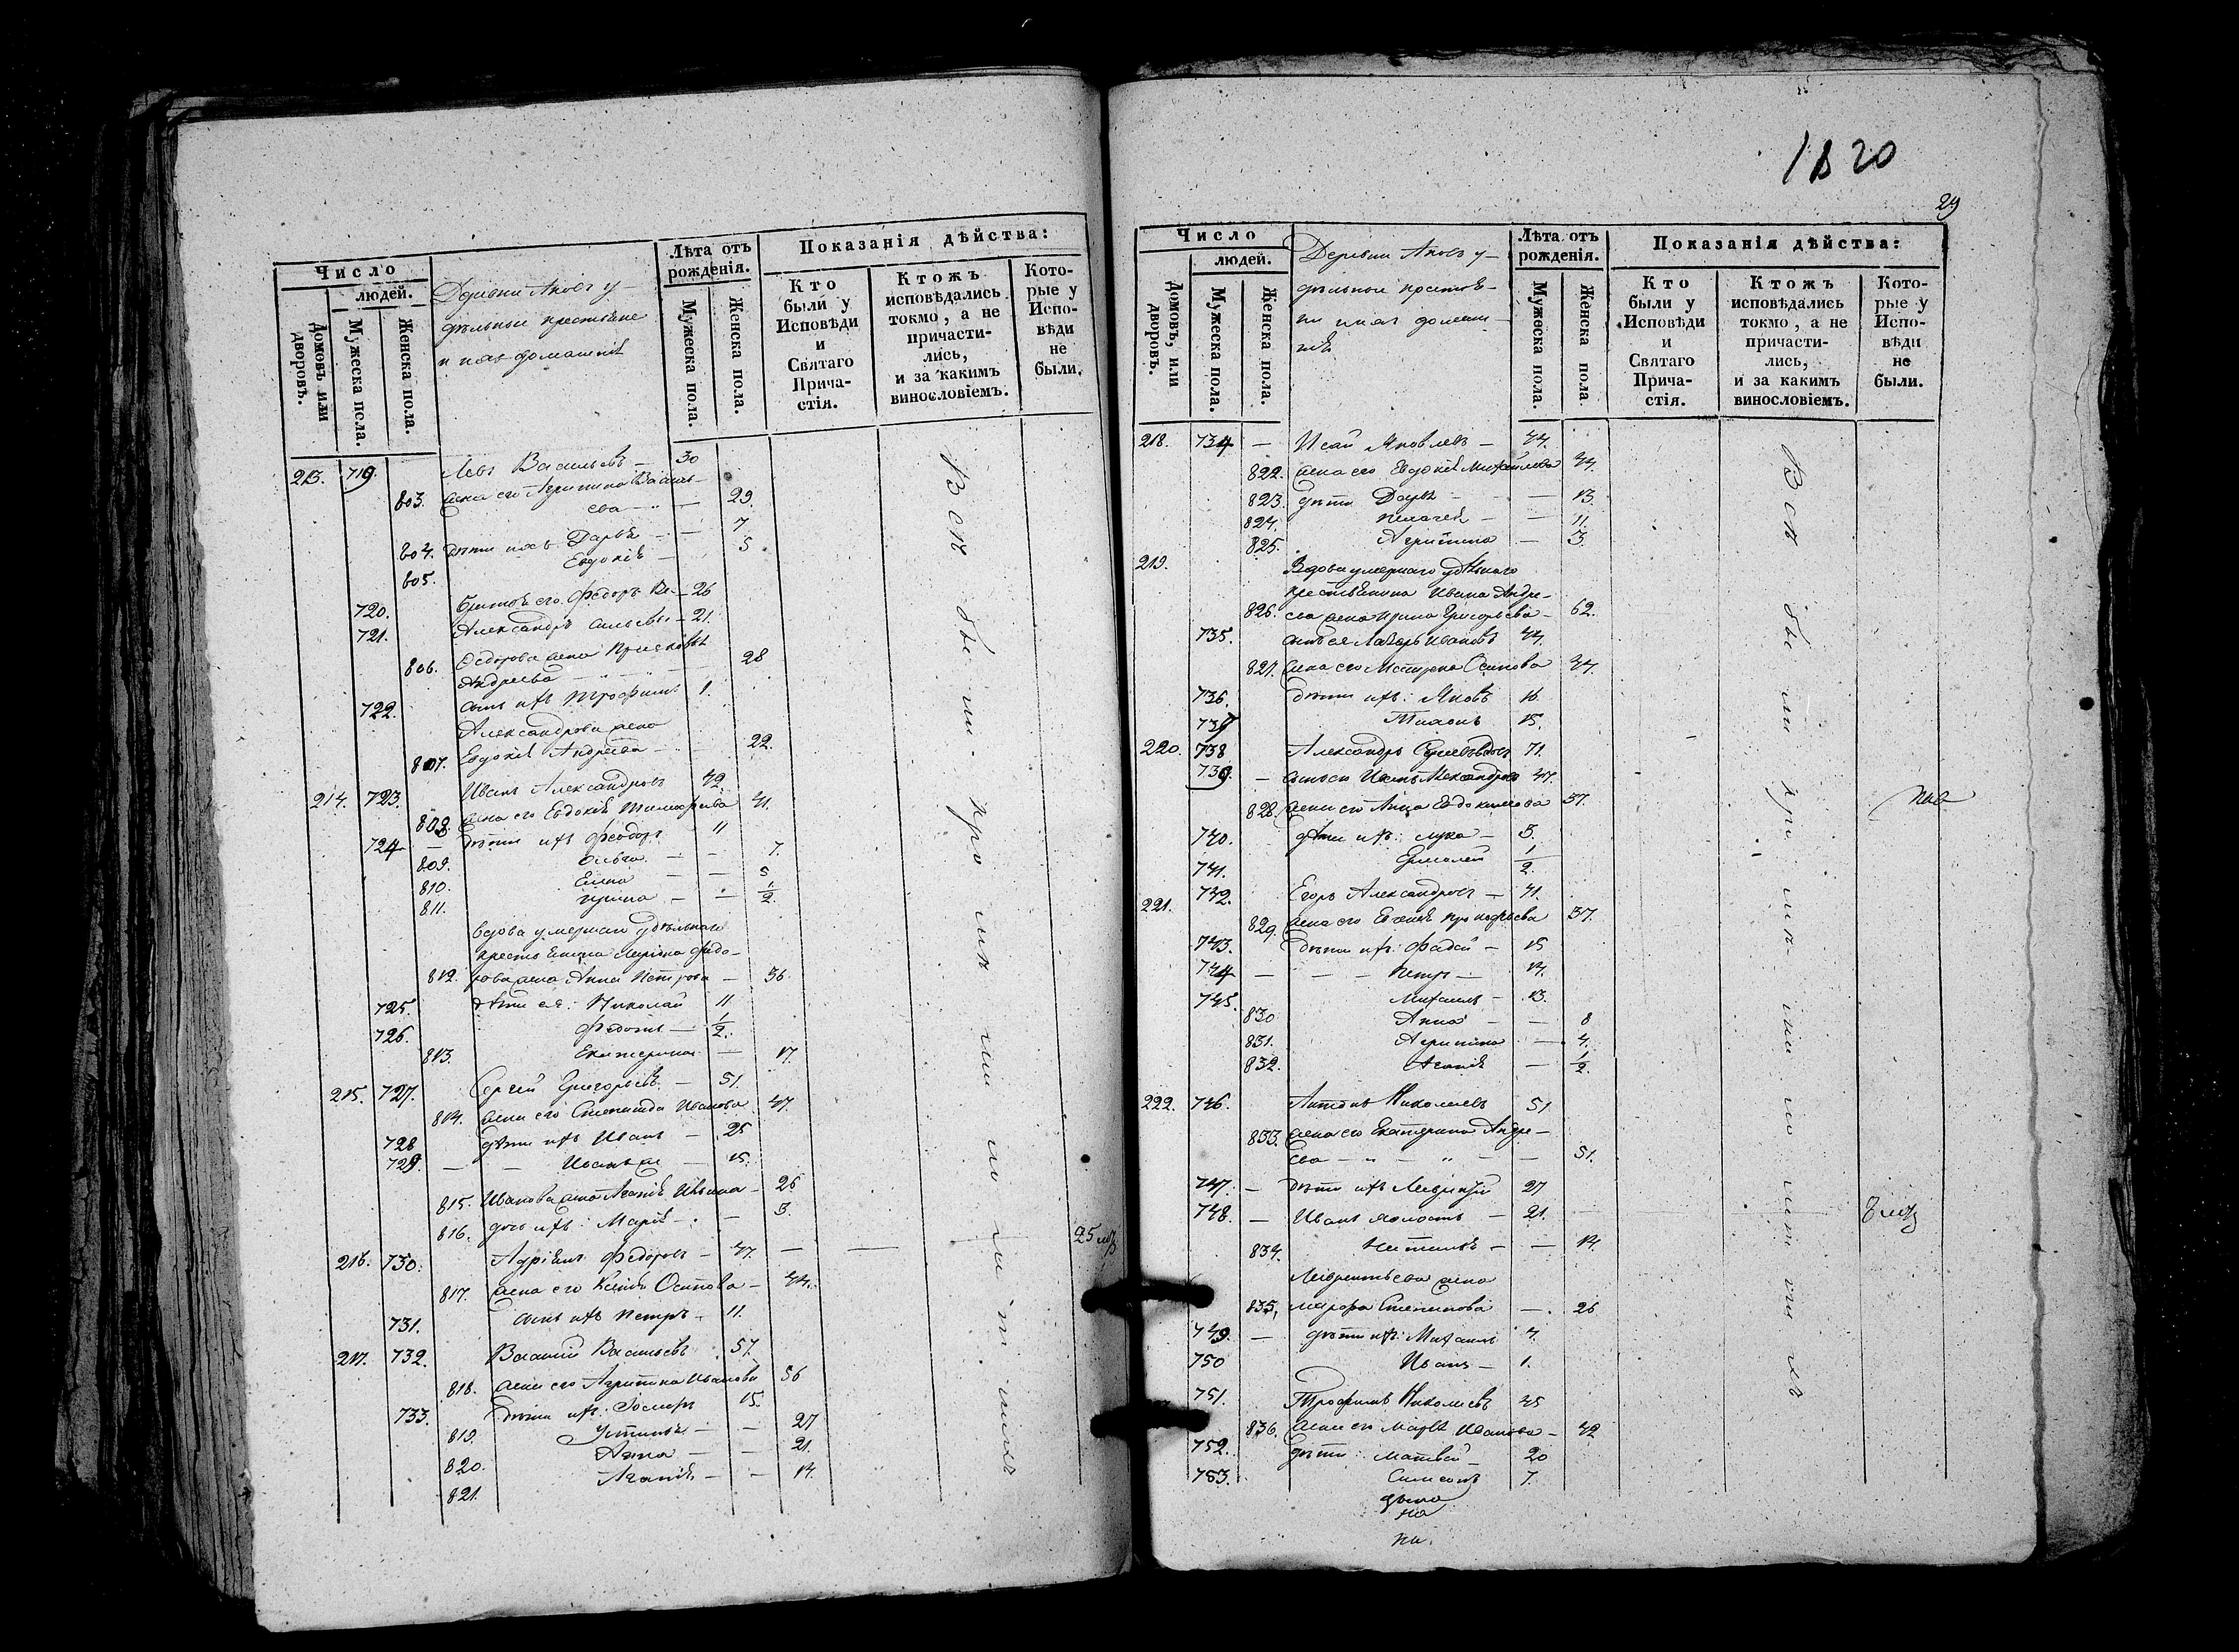 Число
людей.
Домовъ или дворовъ.
Мужеска пола.
Женска пола.
Деревни
удѣльные крестьяне
и ихъ домашнiѣ
Лѣта отъ рожденія.
Мужеска пола.
Женска пола.
Показанія дѣйства:
Кто были у Исповѣди и Святаго Причастія.
Ктожъ исповѣдались токмо, а не причастились, и за какимъ винословіемъ.
Которые у Исповѣди не были.
213. 719. Левъ Васильевъ 30
803. жена его Агрипина Василь-
ева 29.
804. дѣти ихъ Дарья 7
805. Евдокія 5
720. братья его Федоръ Ва- 26
721. Александръ сильевы 21.
806. Федорова жена
Андреева 28
722. сынъ ихъ Трофимъ 1.
Александрова жена
807. Евдокія Андреева 22.
214. 723. Иванъ Александровъ 42.
808. жена его Евдокія Тимофеева 41.
724 дѣти ихъ Феодоръ 11
809. Ольга 7.
810. Елена 5
811. Ирина 1/2
вдова умершаго удѣльнаго
крестьянина Федо-
812. рова жена Анна Петрова 36.
725. дѣти ея: Николай 11
726. Федотъ 1/2.
813. Екатерина 17.
215. 727. Сергей Григорьевъ 51.
814. жена его Степанида Иванова 47.
728 дѣти ихъ Иванъ 25
729. Иванъ же 15.
815. Иванова жена Агафія Ильина 26
816. дочь ихъ: Марія 3.
216. 730. Адріанъ Федоровъ 47.
25
817. жена его Ксенія Осипова 44.
731. сынъ ихъ Петръ 11.
217. 732. Василій Васильевъ 57.
818. жена его Агрипина Иванова 56
733. дѣти ихъ: 15.
819. Устинья 27
820. Анна 21.
821. Агафія 14.
Всѣ были
1820
29
Число
людей.
Домовъ, или дворовъ.
Мужеска пола.
Женска пола.
Деревни у-
дѣльные крестья-
не и ихъ домаш-
нiѣ
Лѣта отъ рожденія.
Мужеска пола.
Женска пола.
Показанія дѣйства:
Кто были у Исповѣди и Святаго Причастія.
Ктожъ исповѣдались токмо, а не причастились, и за какимъ винословіемъ.
Которые у Исповѣди не были.
218. 734 Исай Яковлевъ 44.
822. жена его Евдокія Михайлова 44.
823. дѣти Дарья 13.
824. Пелагея 11.
825. Агрипина 3.
219. Вдова умершаго удѣльнаго
крестьянина Ивана Андре-
826. ева жена Ирина Григорьева 62.
735. сынъ ея Лазарь Ивановъ 44.
827. жена его Матрона Осипова 44.
736. дѣти ихъ: Яковъ 16.
737 Тихонъ 15.
220. 738 Александръ 71.
739. сынъ его Иванъ Александровъ 47.
828. жена его Анна Евдокимова 37.
740. дѣти ихъ: Лука 3.
741. Ермолай 1/2.
221. 742. Егоръ Александровъ 41.
829. жена его Прокофьева 37.
743. дѣти ихъ: Фадей 15
744 Петръ 14.
745. Михаилъ 13.
830 Анна 8
831. Агрипина 4.
832. Агафія 1/2.
222. 746. Антонъ Николаевъ 51
833. жена его Екатерина Андре-
ева 51.
747. дѣти ихъ Лаврентій 27
748. Иванъ холостъ 21.
834. Наталья 14.
Лаврентьева жена
835. Марфа Степанова 26
749. дѣти ихъ: Михаилъ 4.
750 Иванъ 1.
751. Трофимъ Николаевъ 45
836. жена его Марья Иванова 42
752. дѣти: Матвей 20
753. Симеонъ 7.
Всѣ были